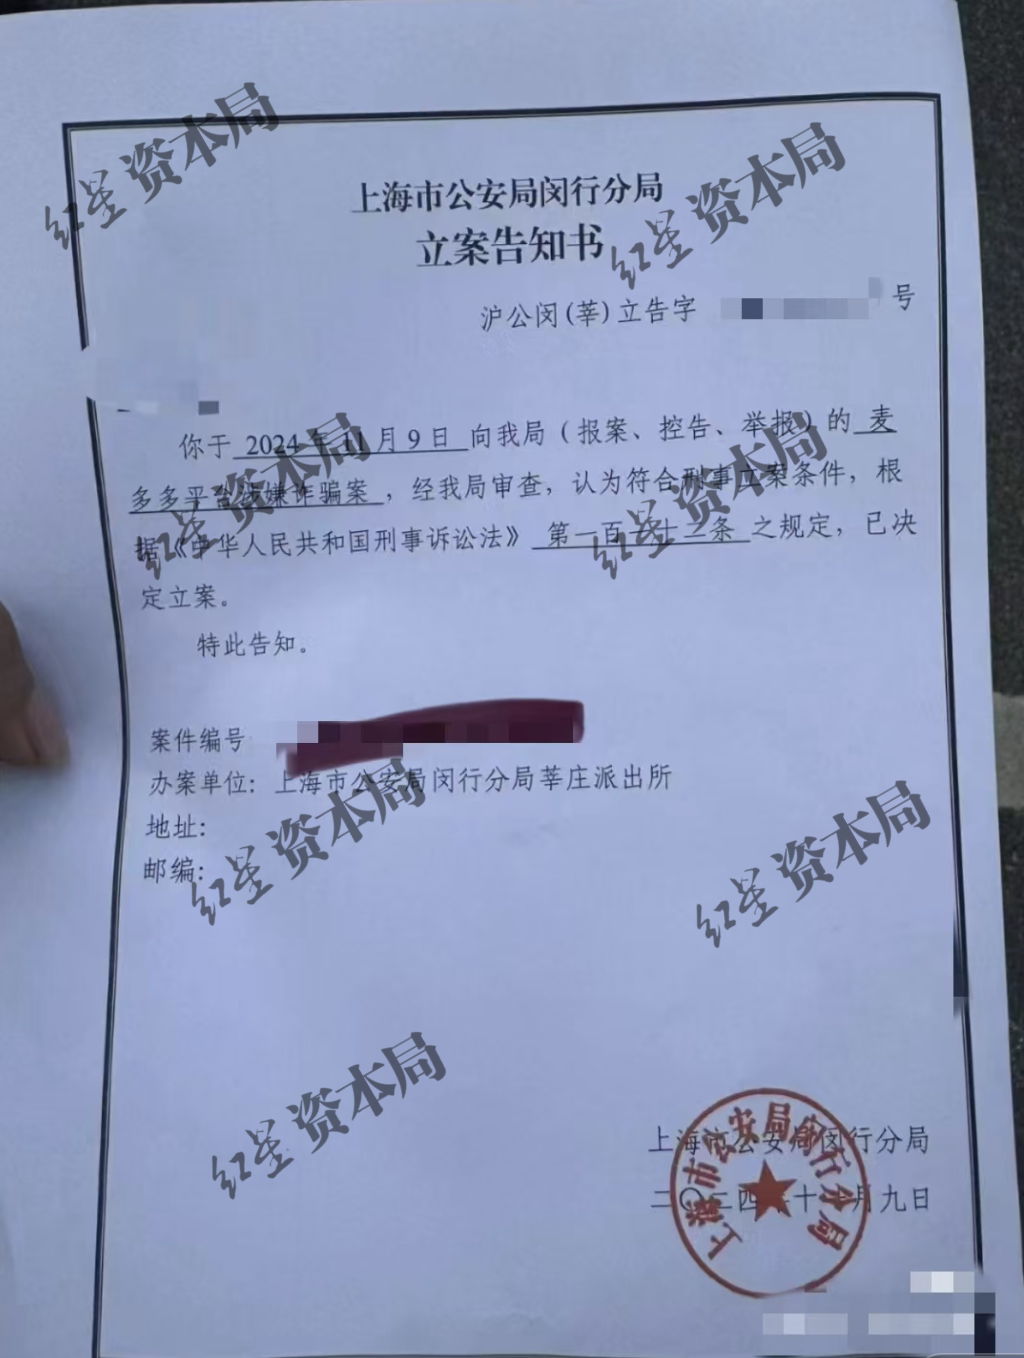 上海市公安局闵行分局
立案告知书
沪公闵(莘)立告字 号
你于 2024年11月9日 向我局（报案、控告、举报）的 麦
多多平台涉嫌诈骗案 ，经我局审查，认为符合刑事立案条件，根
据《中华人民共和国刑事诉讼法》 第一百一十二条 之规定，已决
定立案。
特此告知。
案件编号
办案单位：上海市公安局闵行分局莘庄派出所
地址：
邮编：
上海市公安局闵行分局
二〇二四年十 月九日
上海市公安局闵行分局
红星资本局
红星资本局
红星资本局
红星资本局
红星资本局
红星资本局
红星资本局